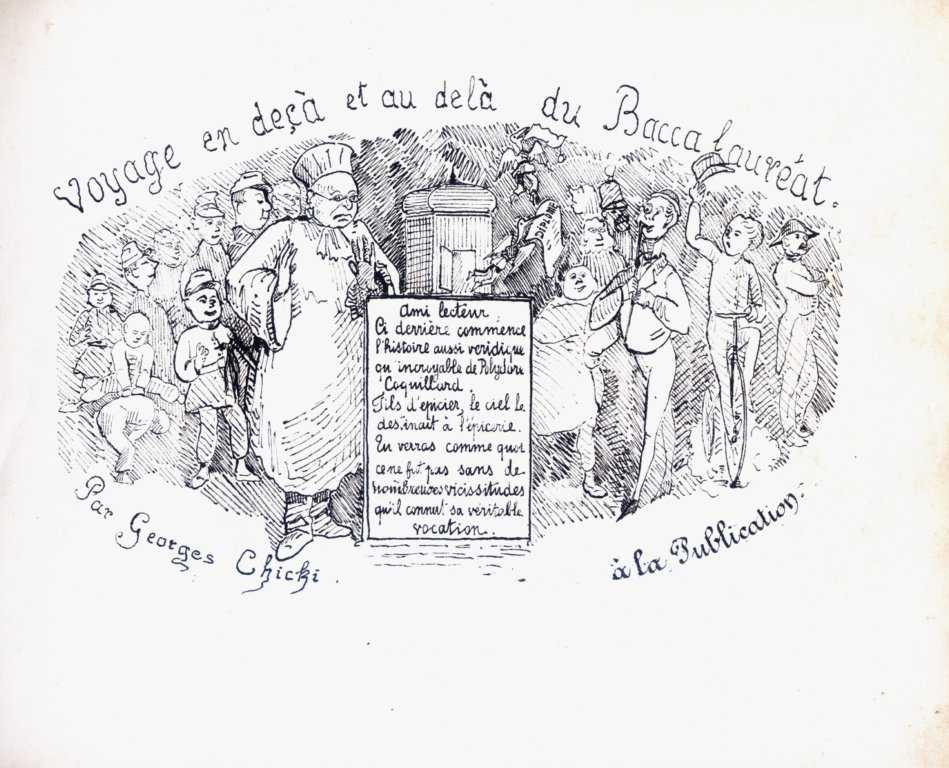 Voyage en deçà et au delà du Baccalauréat.
Ami lecteur
Ci derrière commence
l'histoire aussi veridique
qu'incroyable de Polydore
Coquillard.
Fils d'epicier, le ciel le
destinait à l'épicerie.
Tu verras comme quoi
ce ne fut pas sans de
nombreuses vicissitudes
qu'il connut sa veritable
vocation.
Par Georges Chicki.
à la Publication.